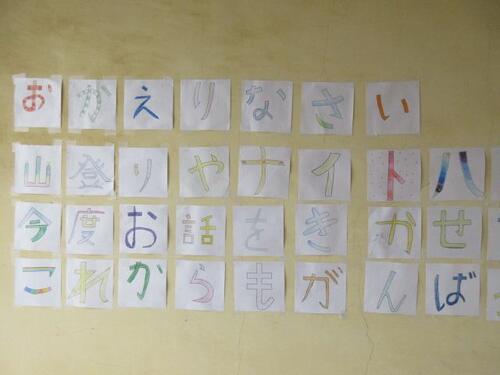 おかえりなさい
山登りやナイトハ
今度お話をきかせ
これからもがんば